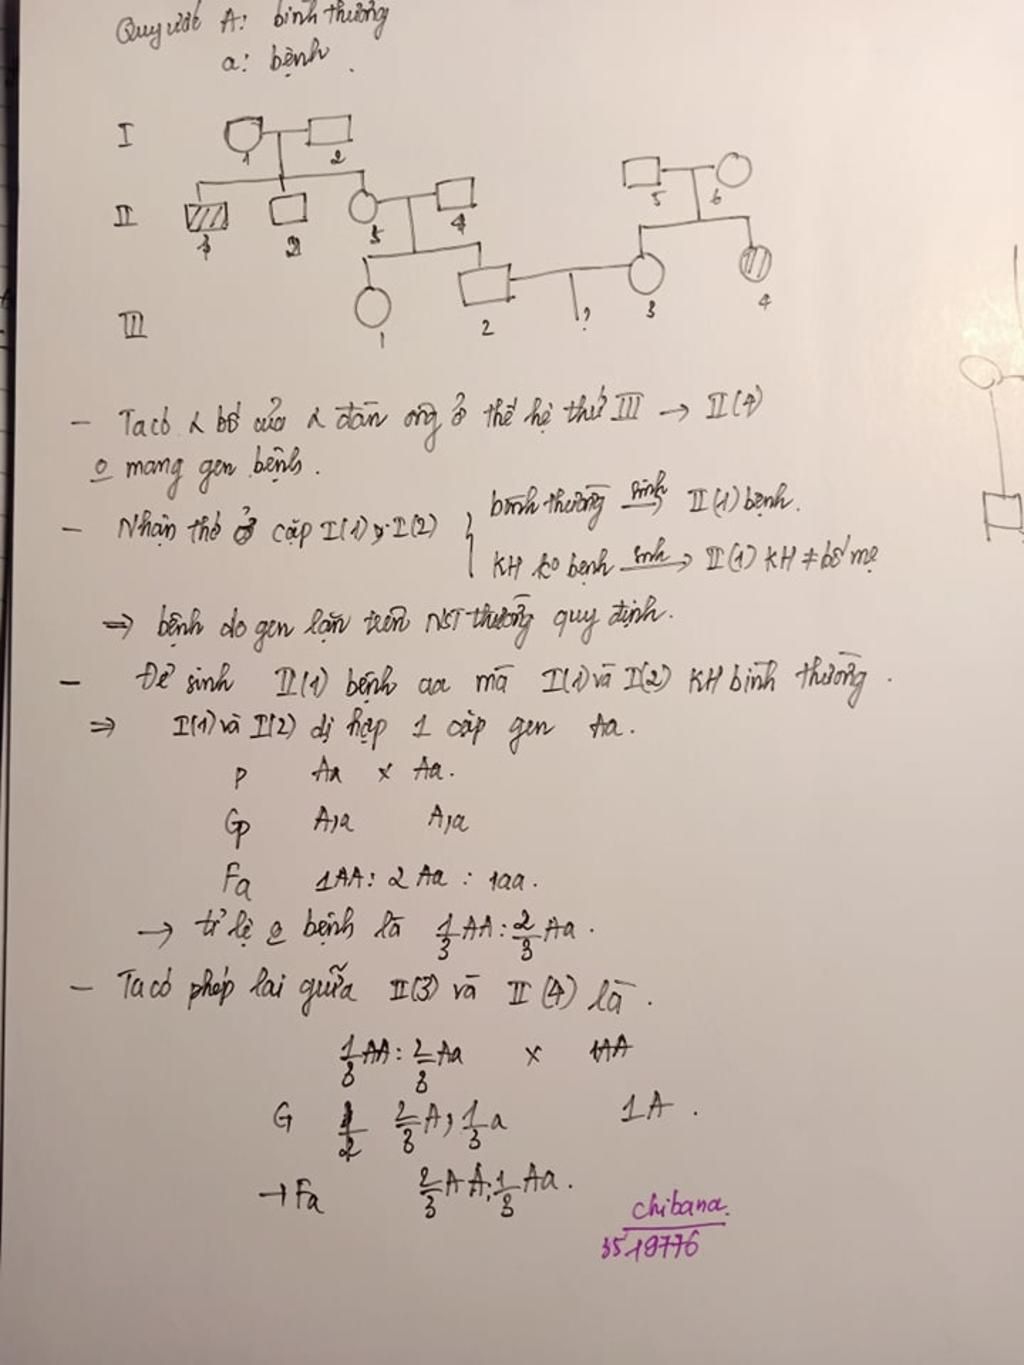 Quy ước A: bình thường
a: bệnh.
I
1 2
II
1 2 3 4 5 6
III
1 2 ? 3 4
– Ta có bố của đàn ông ở thế hệ thứ III → II(4)
o mang gen bệnh.
– Nhận thấy ở cặp I(1) x I(2) { bình thường sinh→ II(1) bệnh.
KH ko bệnh sinh→ II(1) KH ≠ bố mẹ
⇒ bệnh do gen lặn trên NST thường quy định.
– Để sinh II(1) bệnh aa mà I(1) và I(2) KH bình thường.
⇒ I(1) và I(2) dị hợp 1 cặp gen Aa.
P Aa x Aa.
Gp A,a A,a
Fa 1AA: 2Aa : 1aa.
→ tỉ lệ o bệnh là 1/3 AA : 2/3 Aa.
– Ta có phép lai giữa II(3) và II(4) là.
1/3 AA : 2/3 Aa x 1AA
G 2/3 A, 1/3 a 1A.
→ Fa 2/3 AA : 1/3 Aa.
chibana.
3519776